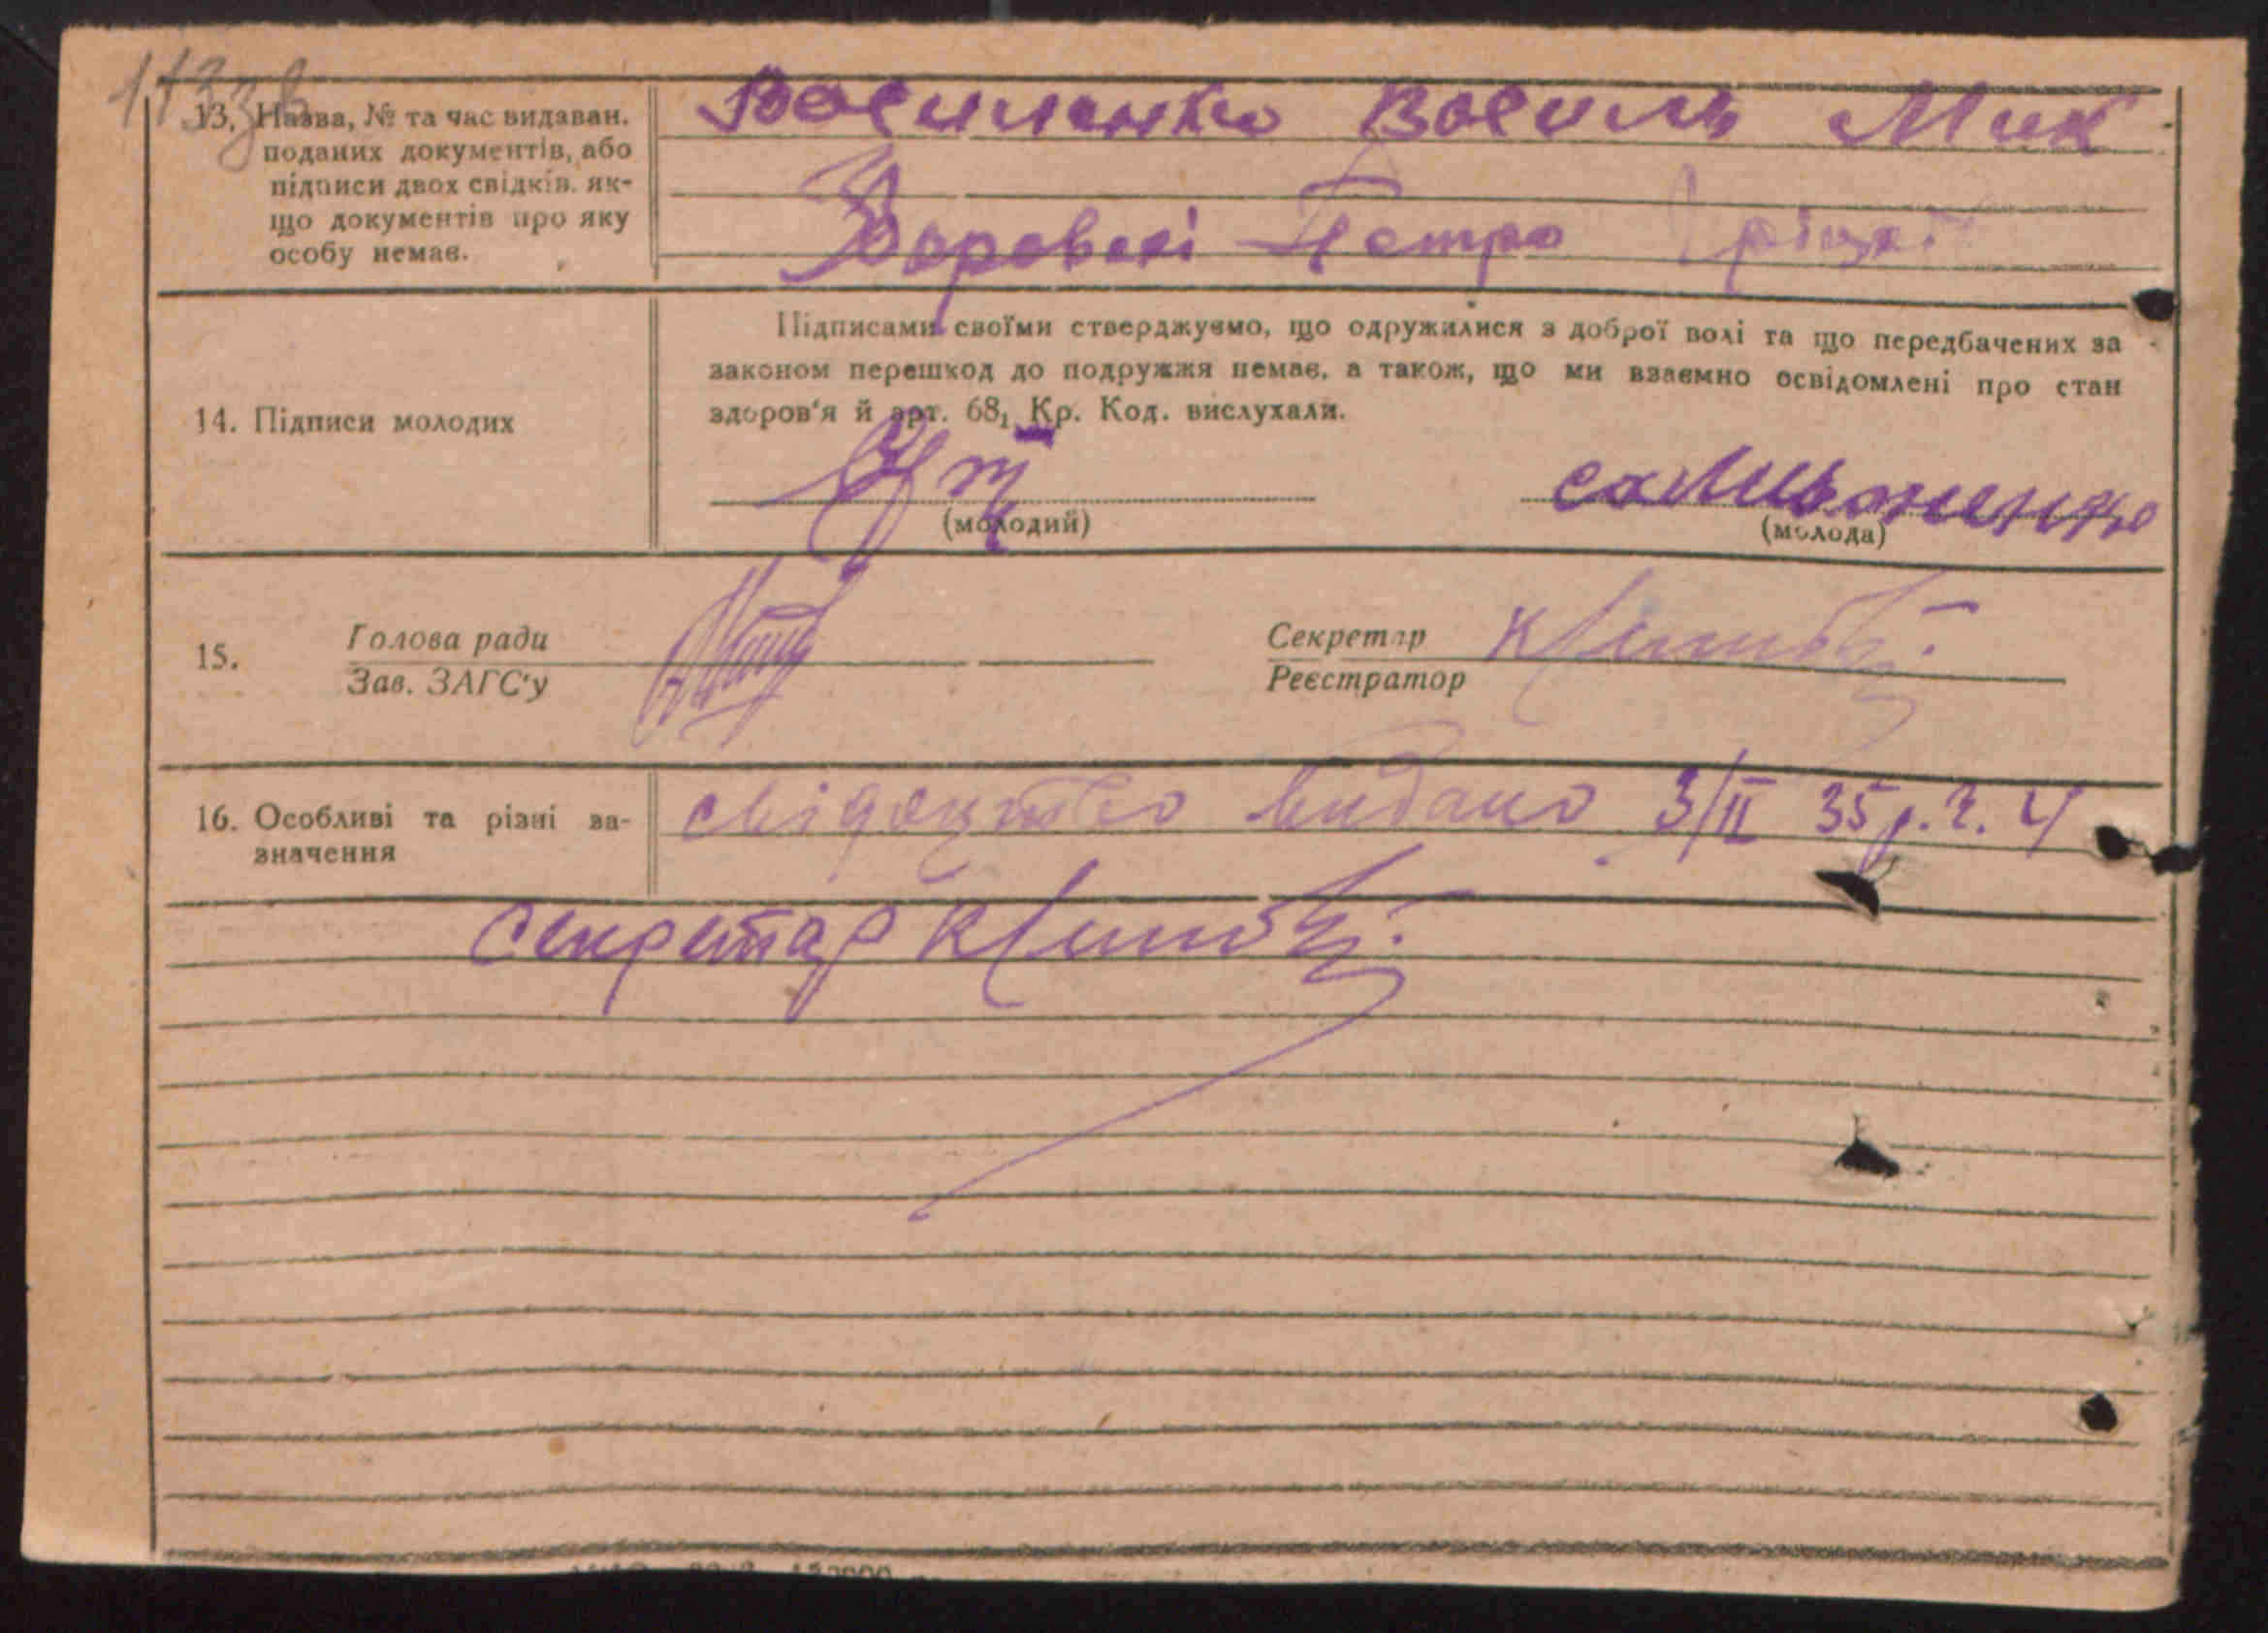 113зв
13. Назва, № та час видаван.
поданих документів, або
підписи двох свідків, як-
що документів про яку
особу немає.
Василенко Василь Мик
Боровскі Петро
14. Підписи молодих
Підписами своїми стверджуємо, що одружилися з доброї волі та що передбачених за
законом перешкод до подружжя немає, а також, що ми взаємно освідомлені про стан
здоров'я й арт. 68₁ Кр. Код. вислухали.
(молодий)
(молода)
15.
Голова ради
Зав. ЗАГС'у
Секретар
Реєстратор
16. Особливі та різні за-
значення
свідоцтво видано 3/II 35 р. г. 4
секретар